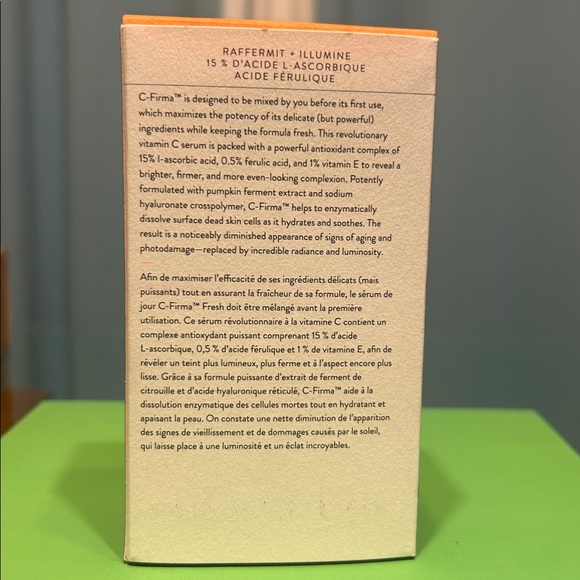 RAFFERMIT + ILLUMINE
15 % D'ACIDE L-ASCORBIQUE
ACIDE FÉRULIQUE
C-Firma™ is designed to be mixed by you before its first use,
which maximizes the potency of its delicate (but powerful)
ingredients while keeping the formula fresh. This revolutionary
vitamin C serum is packed with a powerful antioxidant complex of
15% l-ascorbic acid, 0.5% ferulic acid, and 1% vitamin E to reveal a
brighter, firmer, and more even-looking complexion. Potently
formulated with pumpkin ferment extract and sodium
hyaluronate crosspolymer, C-Firma™ helps to enzymatically
dissolve surface dead skin cells as it hydrates and soothes. The
result is a noticeably diminished appearance of signs of aging and
photodamage—replaced by incredible radiance and luminosity.
Afin de maximiser l'efficacité de ses ingrédients délicats (mais
puissants) tout en assurant la fraîcheur de sa formule, le sérum de
jour C-Firma™ Fresh doit être mélangé avant la première
utilisation. Ce sérum révolutionnaire à la vitamine C contient un
complexe antioxydant puissant comprenant 15 % d'acide
L-ascorbique, 0,5 % d'acide férulique et 1 % de vitamine E, afin de
révéler un teint plus lumineux, plus ferme et à l'aspect encore plus
lisse. Grâce à sa formule puissante d'extrait de ferment de
citrouille et d'acide hyaluronique réticulé, C-Firma™ aide à la
dissolution enzymatique des cellules mortes tout en hydratant et
apaisant la peau. On constate une nette diminution de l'apparition
des signes de vieillissement et de dommages causés par le soleil,
qui laisse place à une luminosité et un éclat incroyables.